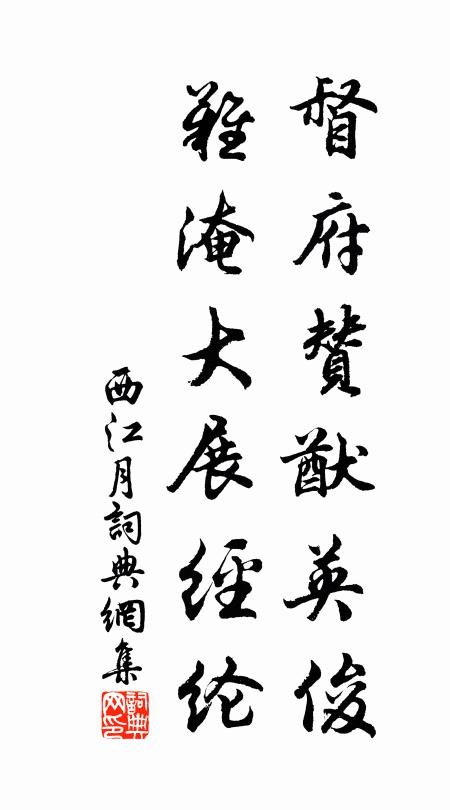 督府贊猷英俊
難淹大展經纶
西江月詞典網集
詞典网印